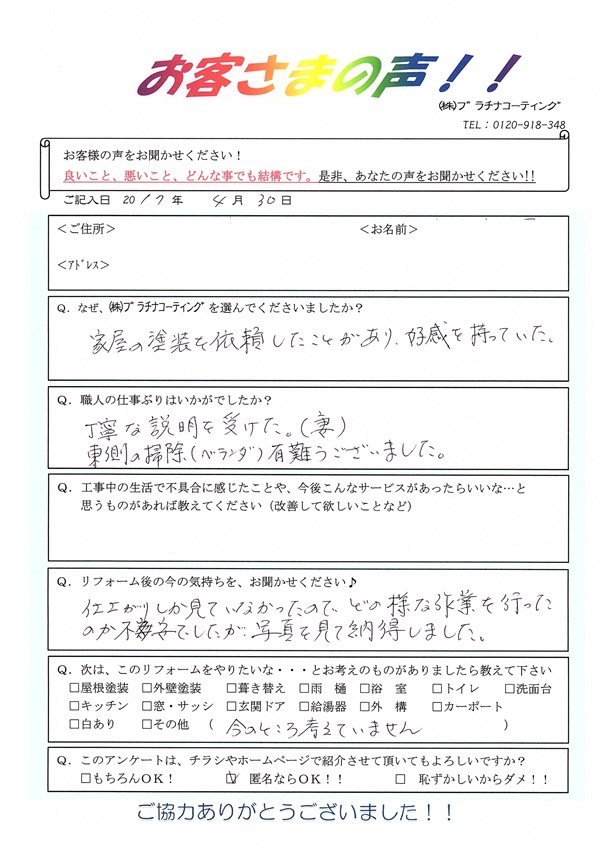 お客さまの声！！
㈱プラチナコーティング
TEL：0120-918-348
お客様の声をお聞かせください！
良いこと、悪いこと、どんな事でも結構です。是非、あなたの声をお聞かせください!!
ご記入日 2017年 4月30日
＜ご住所＞ ＜お名前＞
＜ｱﾄﾞﾚｽ＞
Q．なぜ、㈱プラチナコーティングを選んでくださいましたか？
家屋の塗装を依頼したことがあり、好感を持っていた。
Q．職人の仕事ぶりはいかがでしたか？
丁寧な説明を受けた。(妻)
東側の掃除(ベランダ)有難うございました。
Q．工事中の生活で不具合に感じたことや、今後こんなサービスがあったらいいな…と
思うものがあれば教えてください（改善して欲しいことなど）
Q．リフォーム後の今の気持ちを、お聞かせください♪
仕上がりしか見ていなかったので、どの様な作業を行った
のか不安でしたが、写真を見て納得しました。
Q．次は、このリフォームをやりたいな・・・とお考えのものがありましたら教えて下さい
□屋根塗装 □外壁塗装 □葺き替え □雨 樋 □浴 室 □トイレ □洗面台
□キッチン □窓・サッシ □玄関ドア □給湯器 □外 構 □カーポート
□白あり □その他 （ 今のところ考えていません ）
Q．このアンケートは、チラシやホームページで紹介させて頂いてもよろしいですか？
□もちろんOK！ ☑ 匿名ならOK！！ □ 恥ずかしいからダメ！！
ご協力ありがとうございました！！